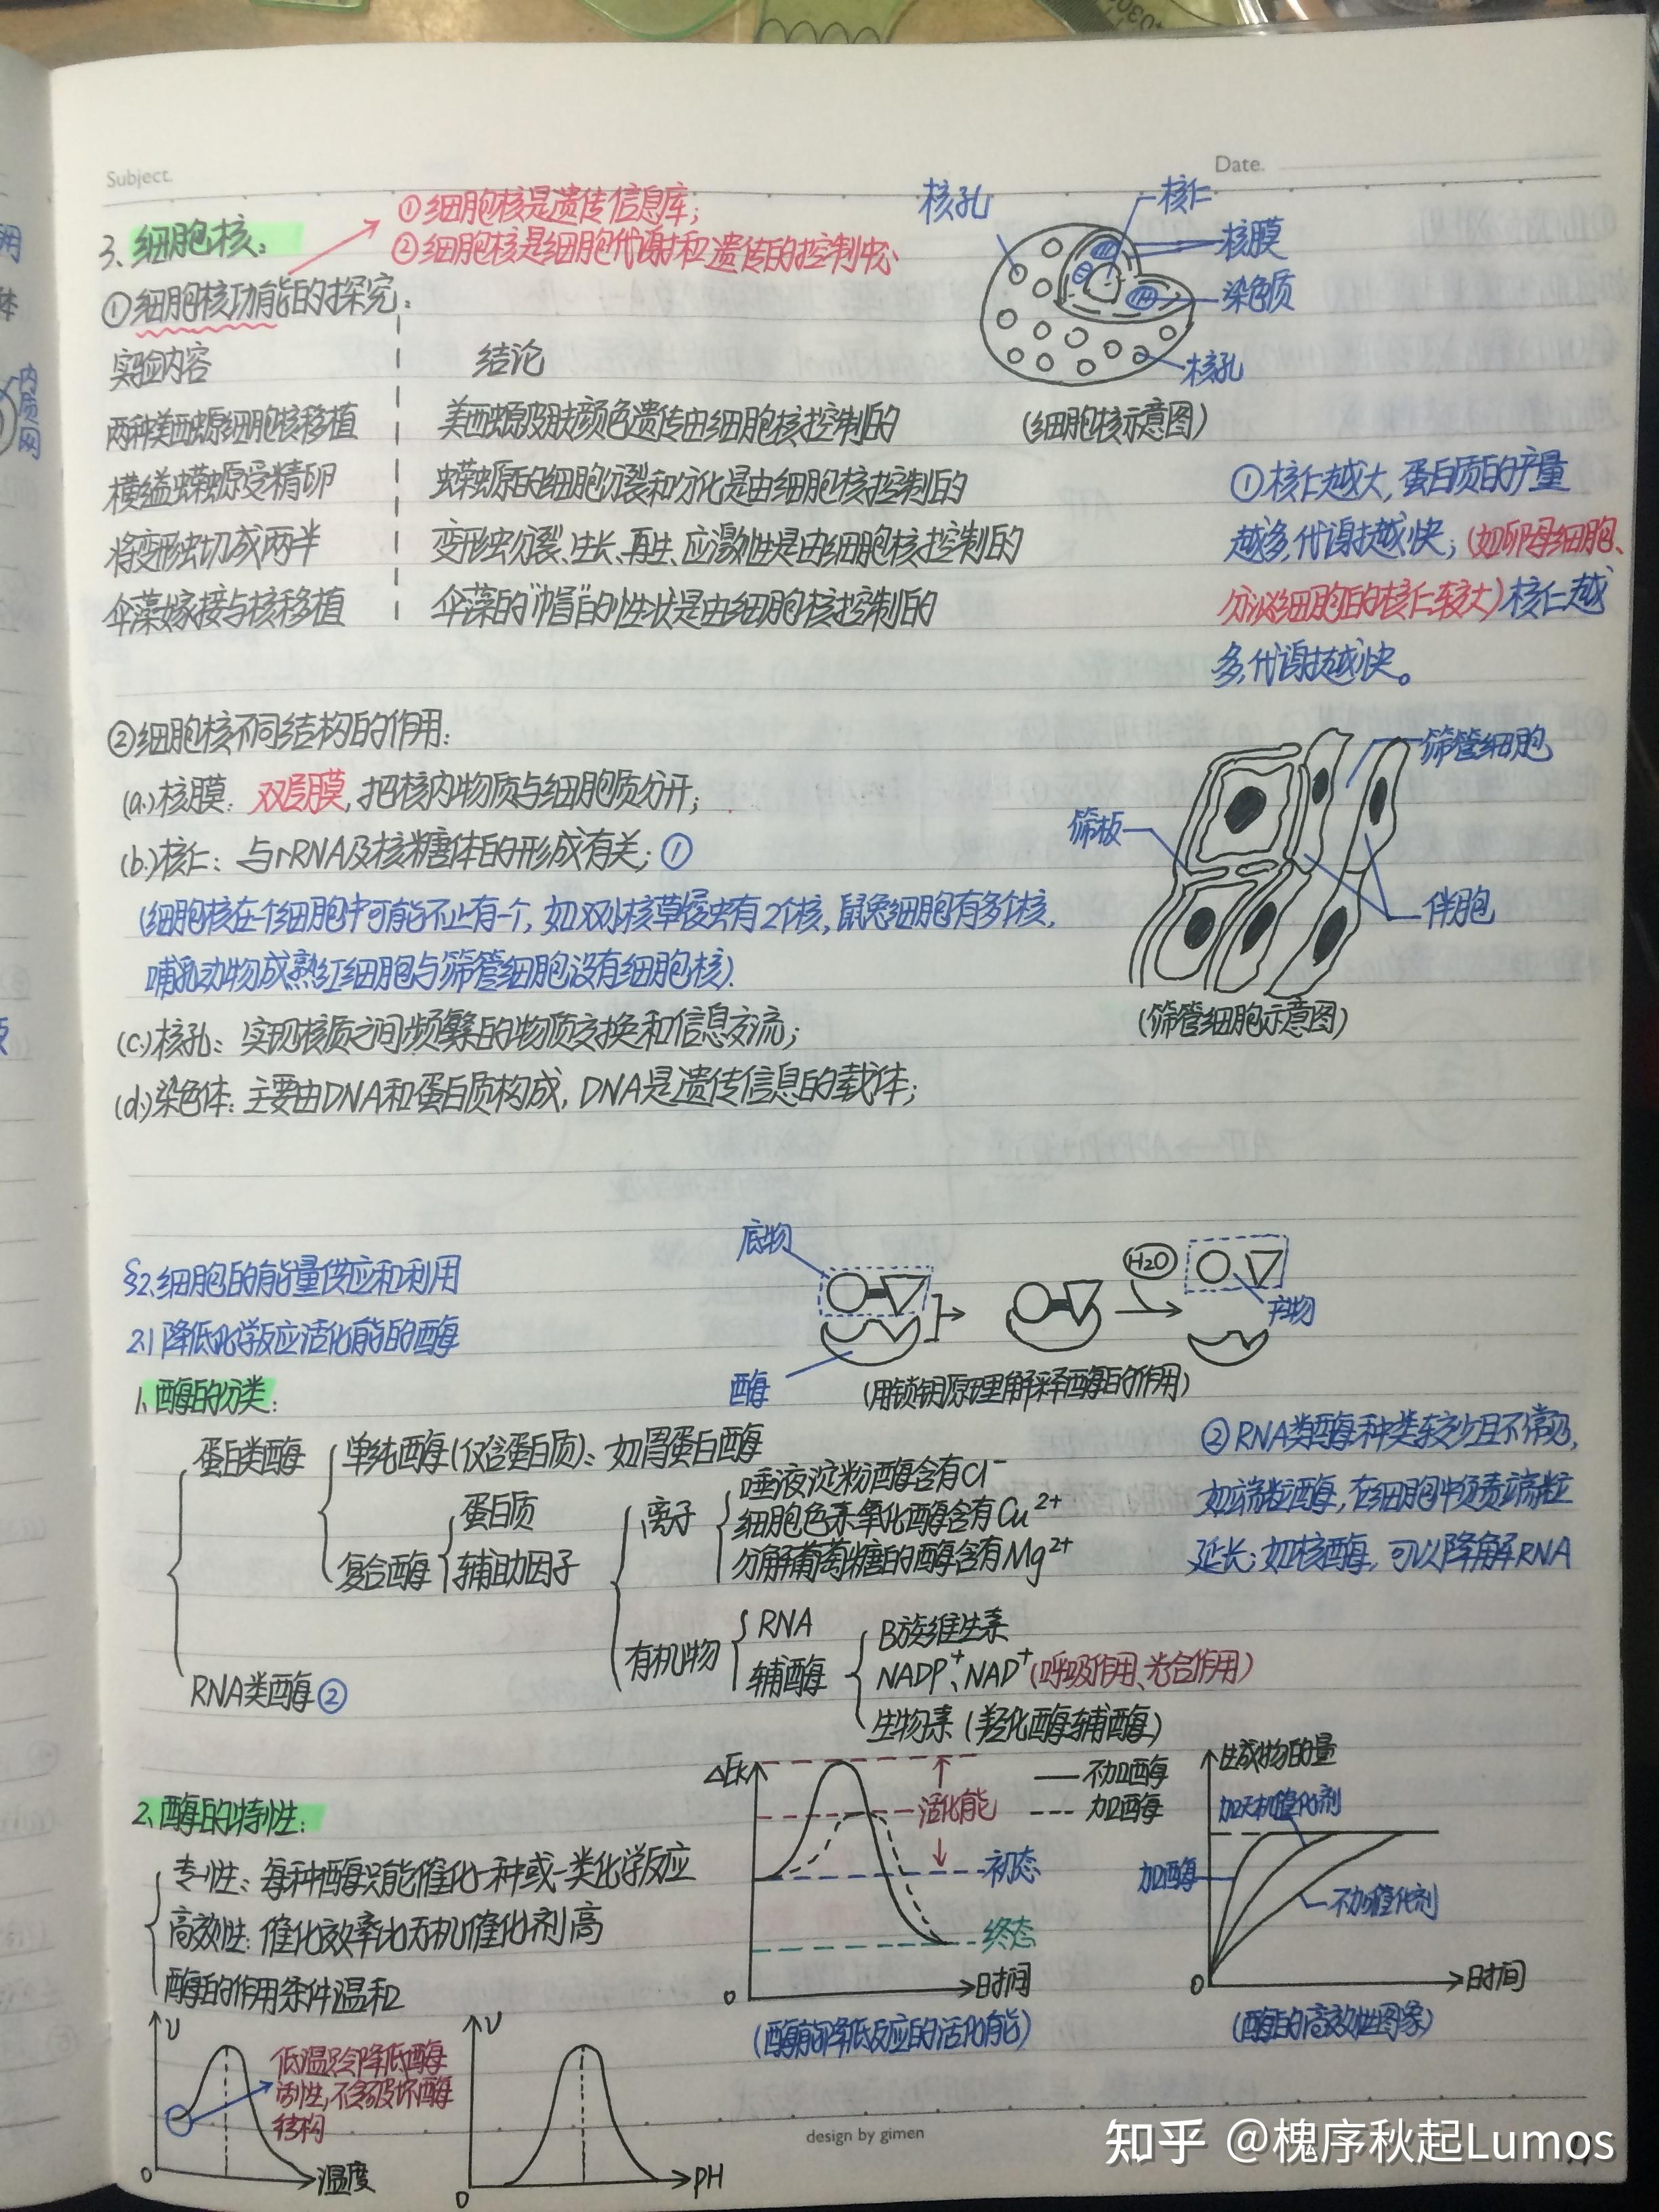 Subject.
Date.
3、细胞核：
①细胞核是遗传信息库；
②细胞核是细胞代谢和遗传的控制中心
①细胞核功能的探究：
实验内容
结论
两种美西螈细胞核移植
美西螈皮肤颜色遗传由细胞核控制的
横缢蝾螈受精卵
蝾螈的细胞分裂和分化是由细胞核控制的
将变形虫切成两半
变形虫分裂、生长、再生、应激性是由细胞核控制的
伞藻嫁接与核移植
伞藻的“帽”的性状是由细胞核控制的
核孔
核仁
核膜
染色质
核孔
(细胞核示意图)
①核仁越大，蛋白质的产量
越多，代谢越快；(如卵母细胞、
分泌细胞的核仁较大)核仁越
多，代谢越快。
②细胞核不同结构的作用：
(a.)核膜：双层膜，把核内物质与细胞质分开；
(b.)核仁：与rRNA及核糖体的形成有关；①
(细胞核在一个细胞中可能不止有一个，如双小核草履虫有2个核，鼠兔细胞有多个核，
哺乳动物成熟红细胞与筛管细胞没有细胞核).
(c.)核孔：实现核质之间频繁的物质交换和信息交流；
(d.)染色体：主要由DNA和蛋白质构成，DNA是遗传信息的载体；
筛管细胞
筛板
伴胞
(筛管细胞示意图)
§2.细胞的能量供应和利用
2.1降低化学反应活化能的酶
底物
酶
H2O
产物
(用锁钥原理解释酶的作用)
1、酶的分类：
蛋白类酶
单纯酶(仅含蛋白质)：如胃蛋白酶
复合酶
蛋白质
辅助因子
离子
唾液淀粉酶含有Cl⁻
细胞色素氧化酶含有Cu²⁺
分解葡萄糖的酶含有Mg²⁺
有机物
RNA
辅酶
B族维生素
NADP⁺、NAD⁺(呼吸作用、光合作用)
生物素(羟化酶辅酶)
RNA类酶②
②RNA类酶种类较少且不常见，
如端粒酶，在细胞中负责端粒
延长；如核酶，可以降解RNA
2、酶的特性：
专一性：每种酶只能催化一种或一类化学反应
高效性：催化效率比无机催化剂高
酶的作用条件温和
ΔEk
活化能
不加酶
加酶
初态
终态
0
时间
(酶能降低反应的活化能)
生成物的量
加无机催化剂
加酶
不加催化剂
0
时间
(酶的高效性图象)
V
低温只会降低酶
活性，不会破坏酶
结构
0
温度
V
0
PH
design by gimen
知乎 @槐序秋起Lumos